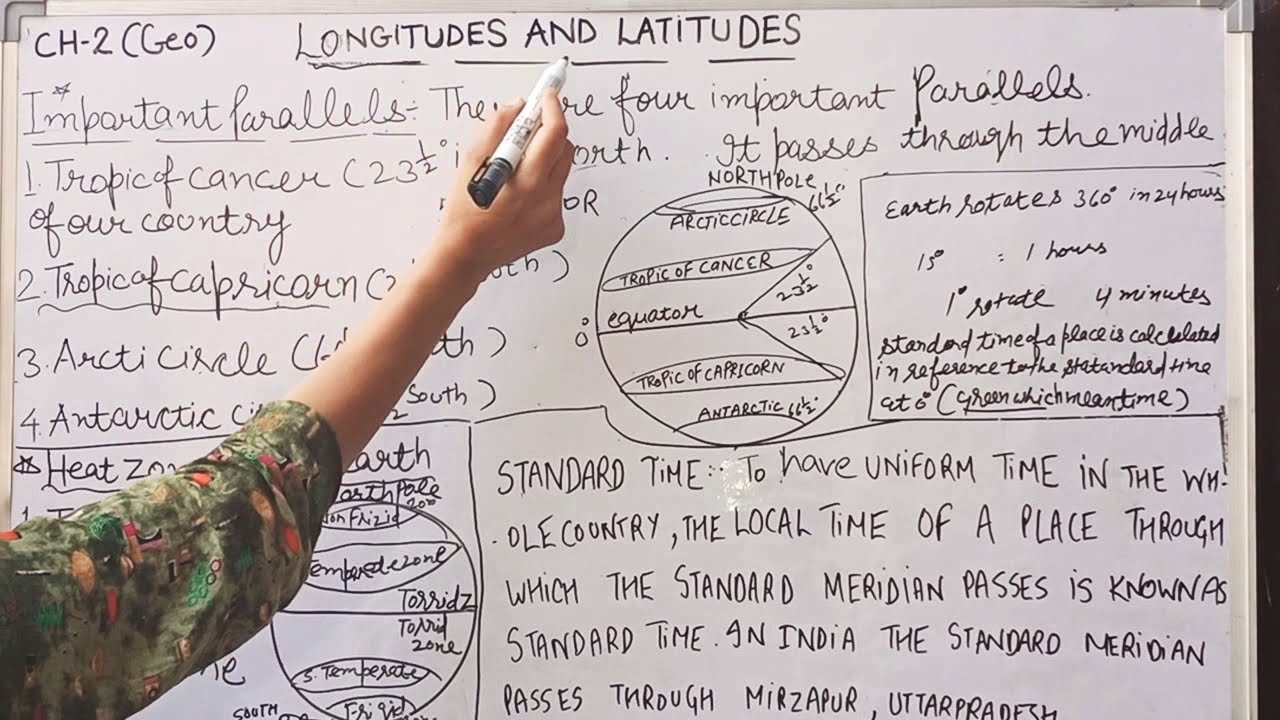 CH-2 (Geo)
LONGITUDES AND LATITUDES
Important Parallels:- There are four important Parallels.
1. Tropic of cancer (23 1/2° in north. It passes through the middle
of our country OR
2. Tropic of capricorn (2 South)
3. Arcti circle (6
4. Antarctic South)
NORTHPOLE
66 1/2°
ARCTICCIRCLE
TROPIC OF CANCER
23 1/2°
0° equator
23 1/2°
TROPIC OF CAPRICORN
ANTARCTIC 66 1/2°
Earth rotates 360° in 24 hours
15° : 1 hours
1° rotate 4 minutes
standard time of a place is calculated
in reference to the statandard time
at 0° (Greenwhich meantime)
Heat Zon Earth
North Pole
Frizid
Temperate zone
Torrid Z
Torrid
zone
S. Temperate
Frigid
SOUTH
STANDARD TIME:- To have UNIFORM TIME IN THE WH-
OLE COUNTRY, THE LOCAL TIME OF A PLACE THROUGH
WHICH THE STANDARD MERIDIAN PASSES IS KNOWN AS
STANDARD TIME. IN INDIA THE STANDARD MERIDIAN
PASSES THROUGH MIRZAPUR, UTTARPRADESH